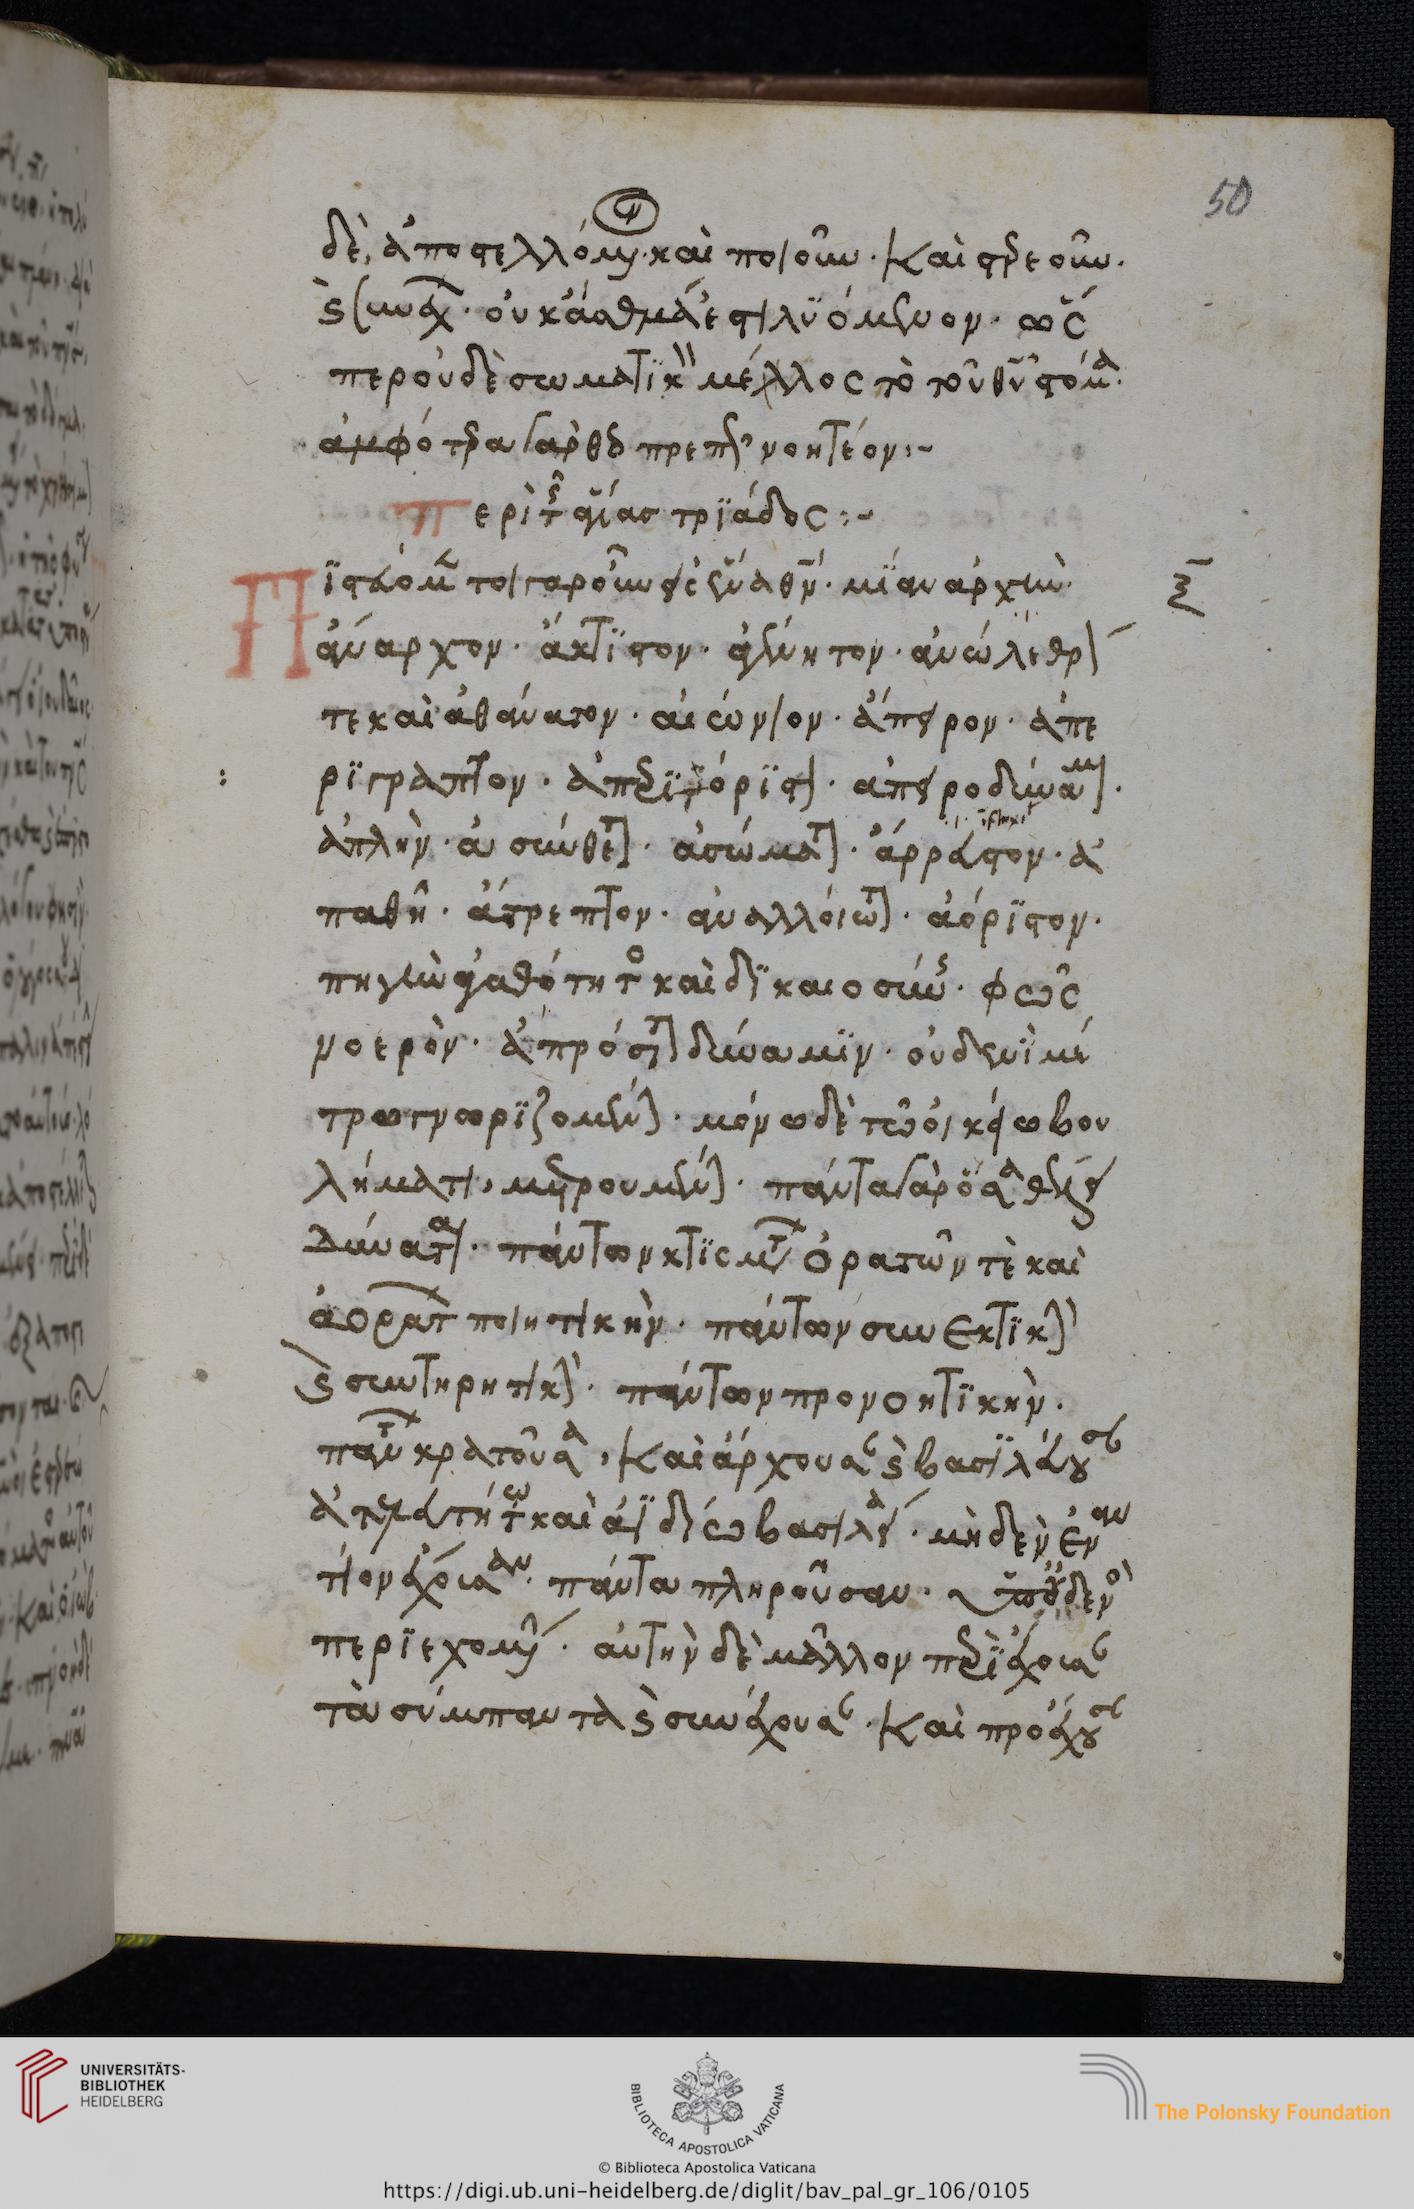 50
δὲ, ἀποστελλόμενον· καὶ ποιοῦν· καὶ στερεοῦν·
καὶ συνέχον· οὐκ ἆσθμά ἐστι λυόμενον· ὥς
περ οὐδὲ σωματικὸν μέλος τὸ τοῦ θῡ στόμα·
ἀμφότερα γὰρ θεοπρεπῶς νοητέον:~
Περὶ τῆς ἁγίας τριάδος:~
Πιστεύομεν τοιγαροῦν εἰς ἕνα θν̄· μίαν ἀρχὴν·
ξ̄
ἄναρχον· ἄκτιστον· ἀγέννητον· ἀνώλεθρόν
τε καὶ ἀθάνατον· αἰώνιον· ἄπειρον· ἀπε
ρίγραπτον· ἀπεριόριστον· ἀπειροδύναμον·
ἁπλὴν· ἀσύνθετον· ἀσώματον· ἄρρευστον· ἀ
παθῆ· ἄτρεπτον· ἀναλλοίωτον· ἀόριστον·
πηγὴν ἀγαθότητος καὶ δικαιοσύνης· φῶς
νοερὸν· ἀπρόσιτον δύναμιν· οὐδενὶ μέ
τρω γνωριζομένην· μόνω δὲ τῶ οἰκείω βου
λήματι, μετρουμένην· πάντα γὰρ ὅσα θέλει
δύναται· πάντων κτισμάτων ὁρατῶν τὲ καὶ
ἀοράτων ποιητικὴν· πάντων συνεκτικὴν
καὶ συντηρητικὴν· πάντων προνοητικὴν·
πάντων κρατοῦσαν, καὶ ἄρχουσαν καὶ βασιλεύουσαν
ἀτελευτήτω καὶ ἀϊδίω βασιλεία· μηδὲν ἐναν
τίον ἔχουσαν· πάντα πληροῦσαν· ὑπ' οὐδενὸς
περιεχομένην· αὐτὴν δὲ μᾶλλον περιέχουσαν
τὰ σύμπαντα καὶ συνέχουσαν· καὶ προέχουσαν
UNIVERSITÄTS-
BIBLIOTHEK
HEIDELBERG
BIBLIOTECA APOSTOLICA VATICANA
The Polonsky Foundation
© Biblioteca Apostolica Vaticana
https://digi.ub.uni-heidelberg.de/diglit/bav_pal_gr_106/0105